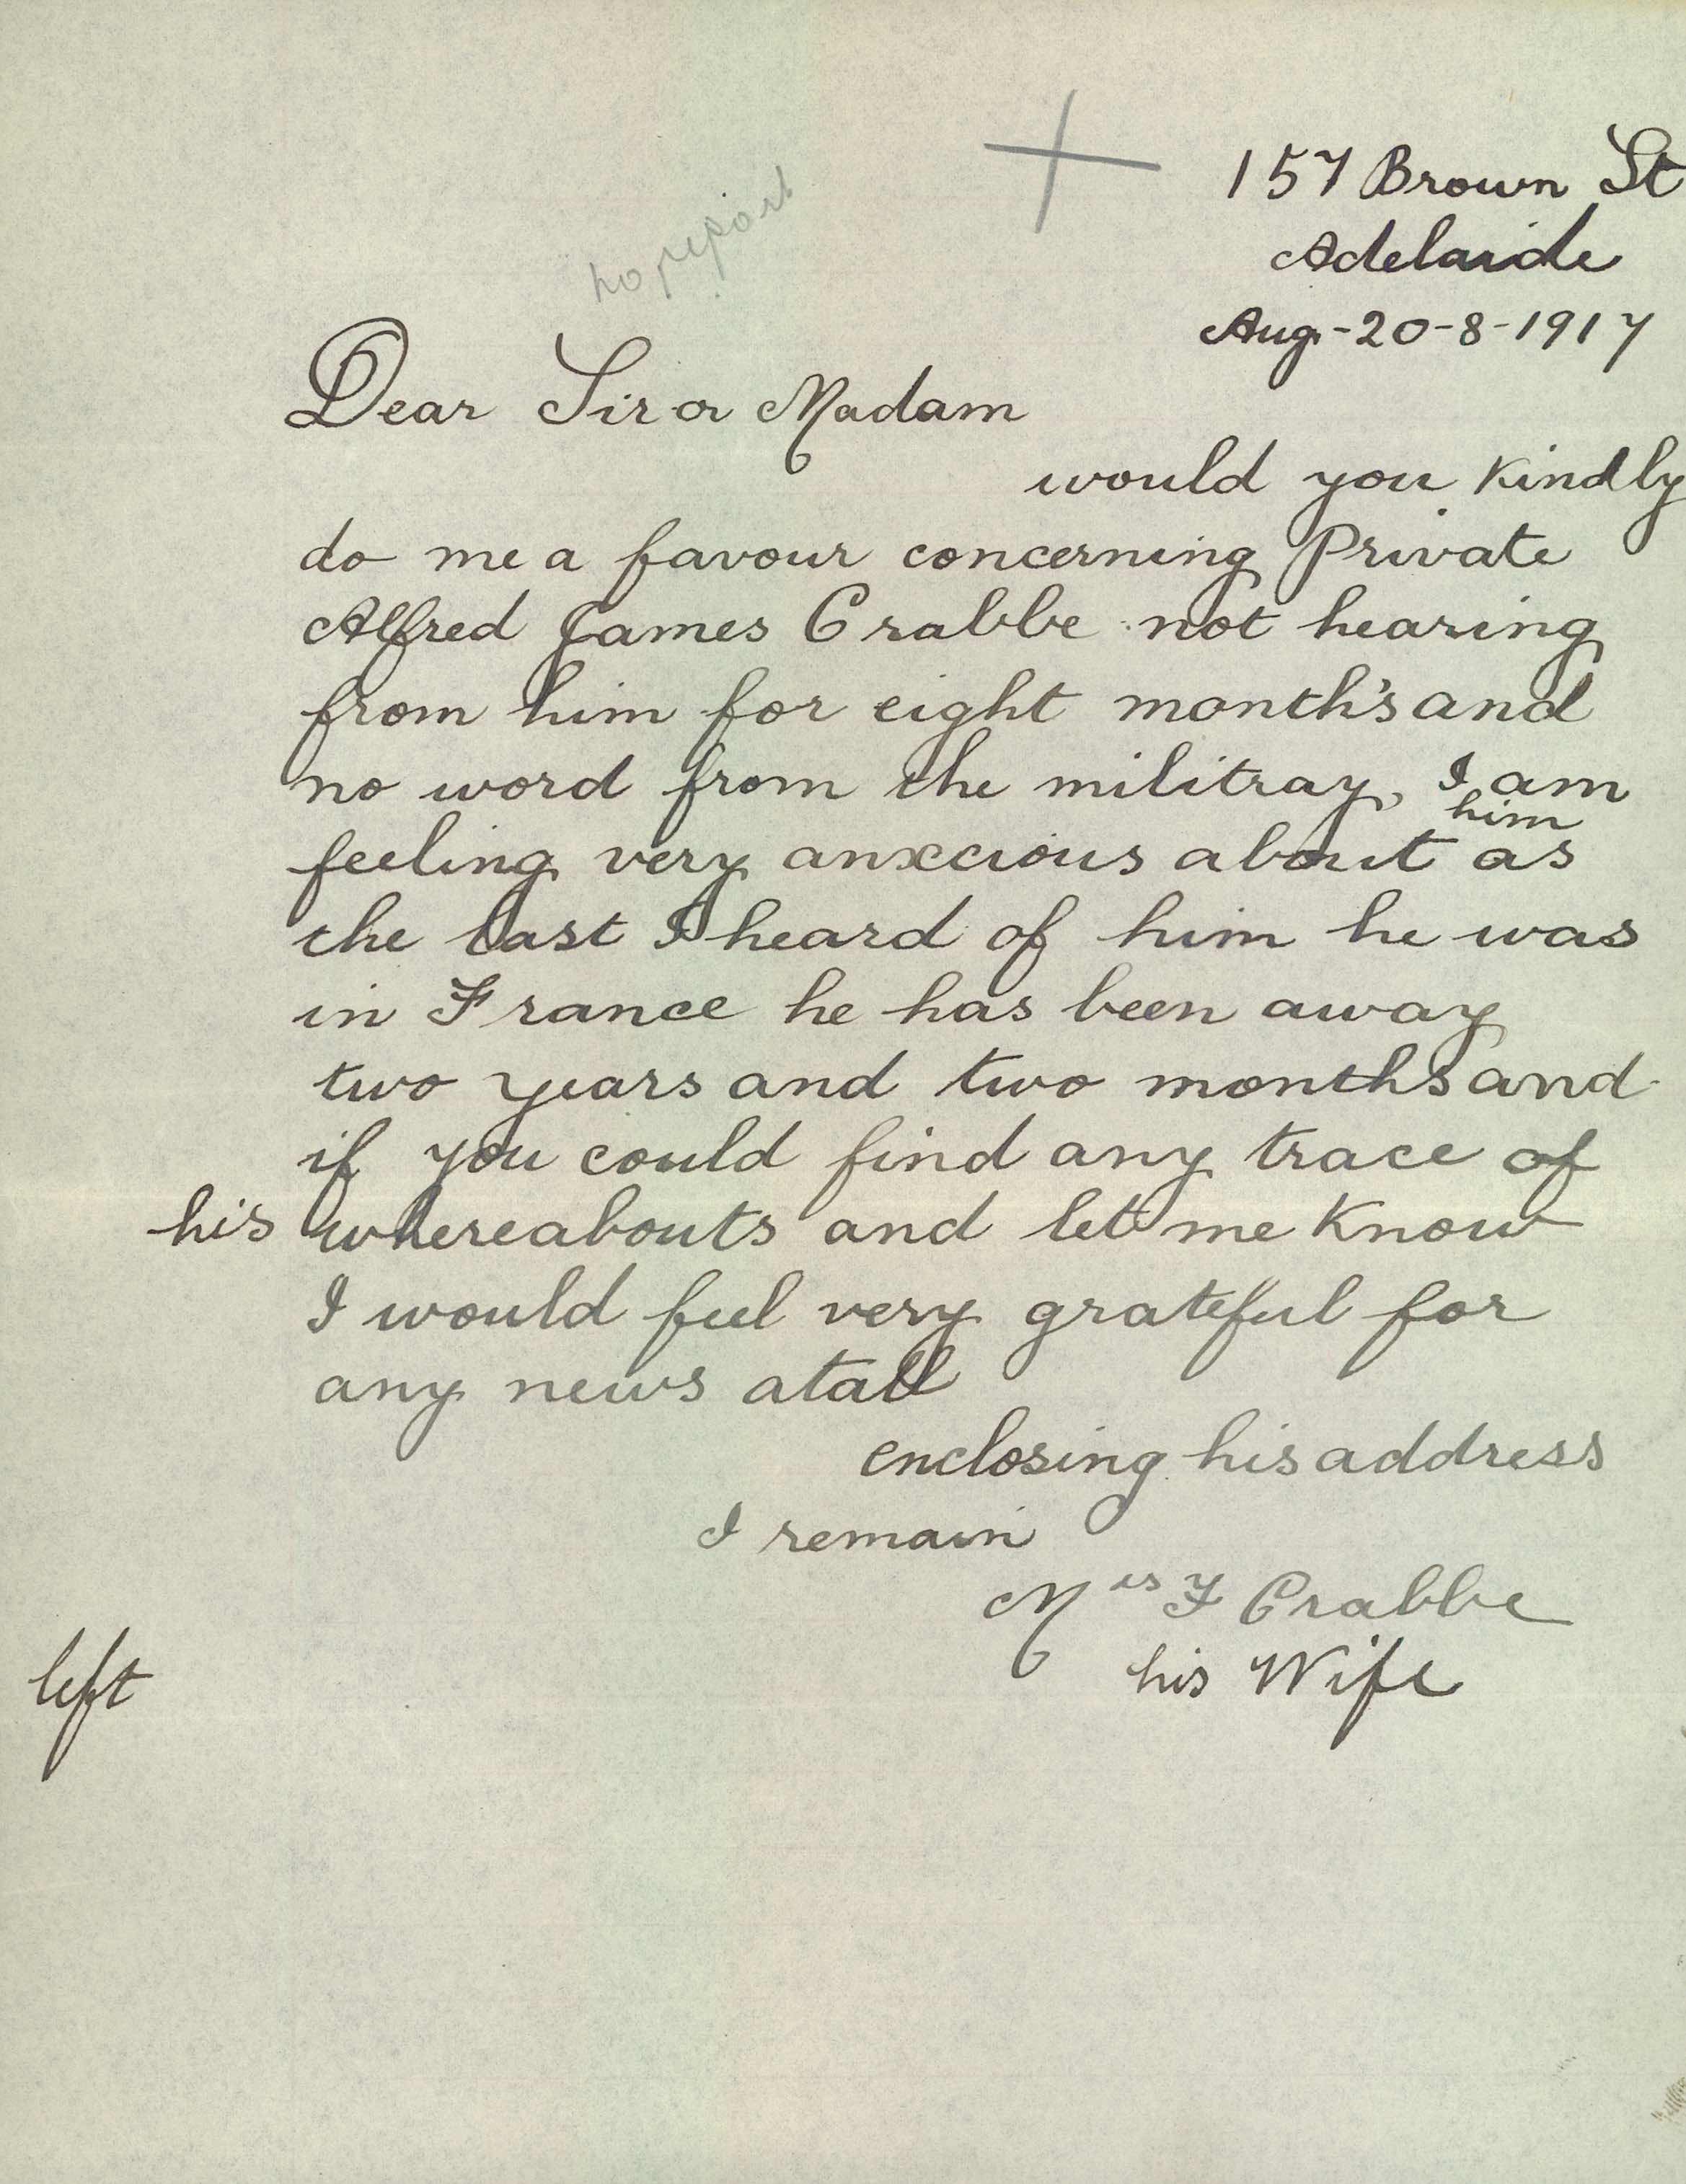 157 Brown St
Adelaide
no report
Aug-20-8-1917
Dear Sir or Madam
would you kindly
do me a favour concerning Private
Alfred James Crabbe not hearing
from him for eight month's and
no word from the militray, I am
feeling very anxcious about him as
the last I heard of him he was
in France he has been away
two years and two months and
if you could find any trace of
his whereabouts and let me know
I would feel very grateful for
any news atall
enclosing his address
I remain
Mrs F Crabbe
his Wife
left